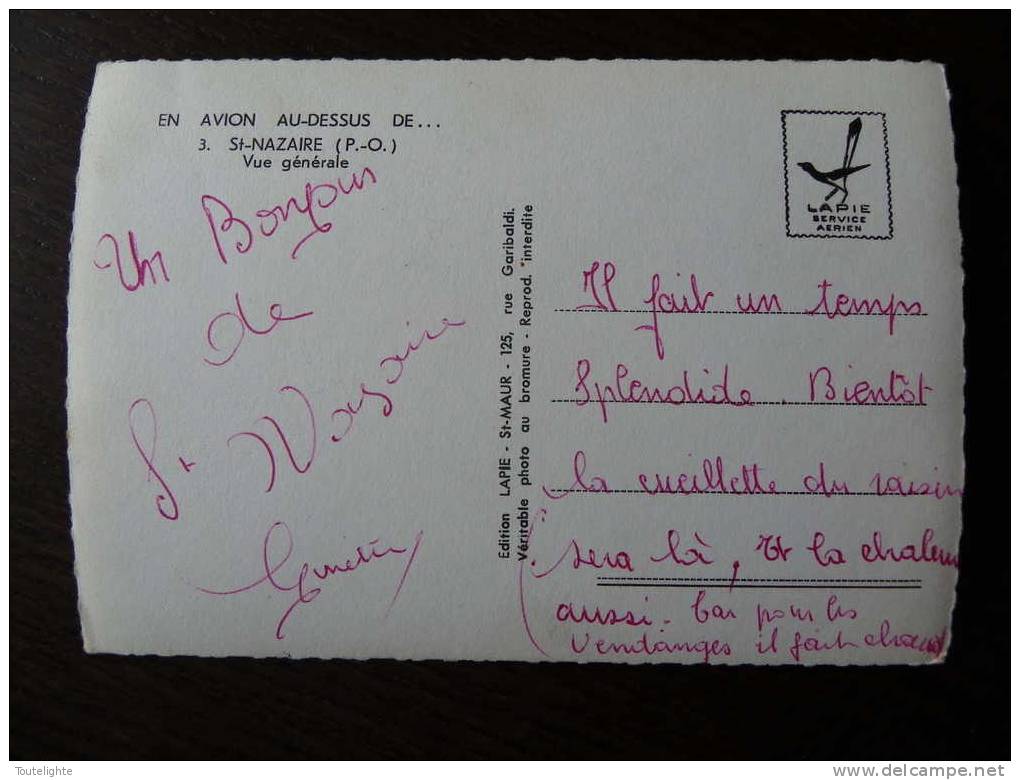 EN AVION AU-DESSUS DE...
3. St-NAZAIRE (P.-O.)
Vue générale
Un Bonjour
de
St Nazaire
Ginette
Edition LAPIE - St-MAUR - 125, rue Garibaldi.
Véritable photo au bromure - Reprod. interdite
LAPIE
SERVICE
AERIEN
Il fait un temps
Splendide. Bientôt
la cueillette du raisin
sera là, Et la chaleur
aussi. Car pour les
Vendanges il fait chaud
Toutelighte
delcampe.net